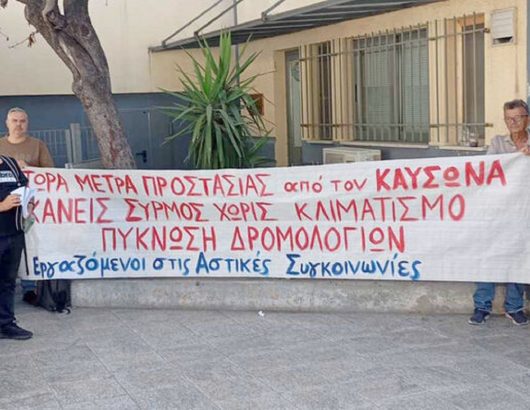 ΤΩΡΑ ΜΕΤΡΑ ΠΡΟΣΤΑΣΙΑΣ από τον ΚΑΥΣΩΝΑ
ΚΑΝΕΙΣ ΣΥΡΜΟΣ ΧΩΡΙΣ ΚΛΙΜΑΤΙΣΜΟ
ΠΥΚΝΩΣΗ ΔΡΟΜΟΛΟΓΙΩΝ
Εργαζόμενοι στις Αστικές Συγκοινωνίες